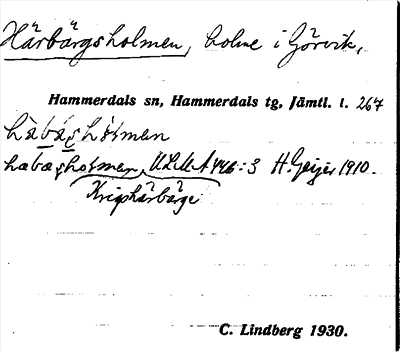 Härbärgsholmen, holme i Görvik,
Hammerdals sn, Hammerdals tg, Jämtl. l. 267
hàbáʂhɵ̀ɽmen
habæʂhoɽmen, ULMA 446:3 H. Geijer 1910.
Krigshärbärge
C. Lindberg 1930.